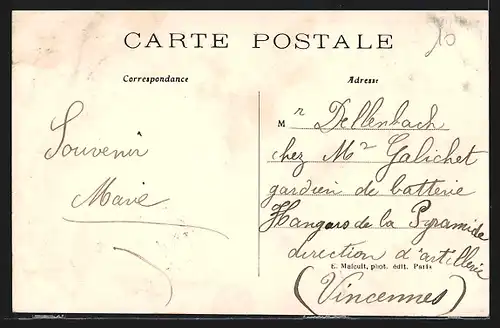 CARTE POSTALE
10
Correspondance
Adresse
Souvenir
Marie
Mr Dellenbach
chez Mr Galichet
gardien de batterie
Hangars de la Pyramide
direction d'artillerie
E. Malcuit, phot. édit. Paris
(Vincennes)